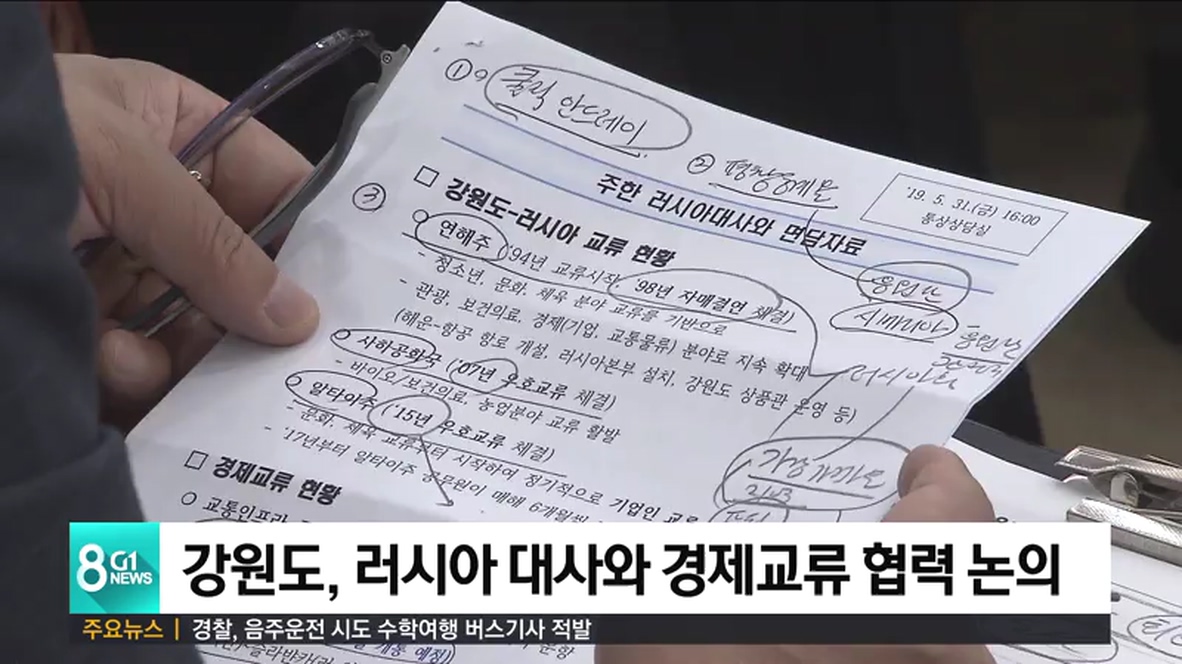 ① 쿨릭 안드레이
② 평창올림픽
'19. 5. 31.(금) 16:00
통상상담실
주한 러시아대사와 면담자료
③
□ 강원도-러시아 교류 현황
○ 연해주 ('94년 교류시작, '98년 자매결연 체결)
- 청소년, 문화, 체육 분야 교류를 기반으로
- 관광, 보건의료, 경제(기업, 교통물류) 분야로 지속 확대
(해운-항공 항로 개설, 러시아본부 설치, 강원도 상품관 운영 등)
시베리아
○ 사하공화국 ('07년 우호교류 체결)
- 바이오/보건의료, 농업분야 교류 활발
○ 알타이주 ('15년 우호교류 체결)
- 문화, 체육 교류부터 시작하여 정기적으로 기업인 교류
- '17년부터 알타이주 공무원이 매해 6개월씩
가장 가까운
□ 경제교류 현황
○ 교통인프라
8 G1 NEWS
강원도, 러시아 대사와 경제교류 협력 논의
주요뉴스 | 경찰, 음주운전 시도 수학여행 버스기사 적발